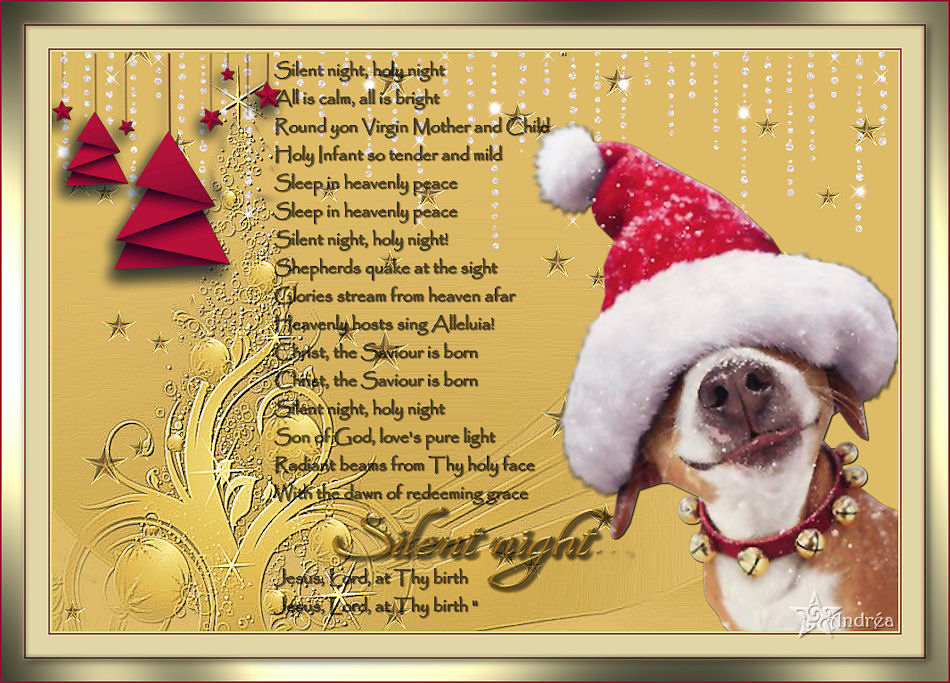 Silent night, holy night
All is calm, all is bright
Round yon Virgin Mother and Child
Holy Infant so tender and mild
Sleep in heavenly peace
Sleep in heavenly peace
Silent night, holy night!
Shepherds quake at the sight
Glories stream from heaven afar
Heavenly hosts sing Alleluia!
Christ, the Saviour is born
Christ, the Saviour is born
Silent night, holy night
Son of God, love's pure light
Radiant beams from Thy holy face
With the dawn of redeeming grace
Silent night...
Jesus, Lord, at Thy birth
Jesus, Lord, at Thy birth "
Andréa